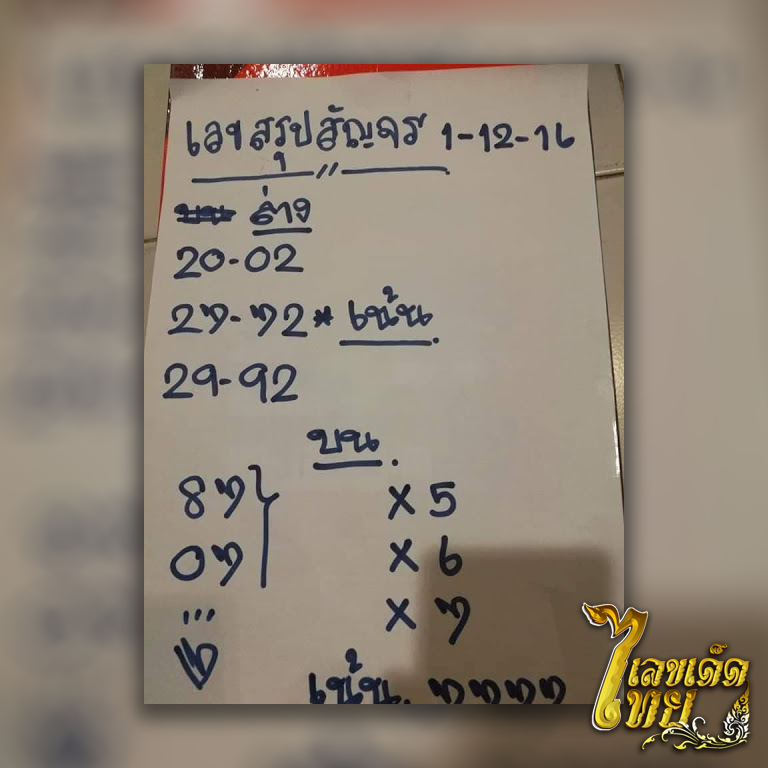 เลขสรุปสัญจร 1-12-16
ล่าง
20-02
27-72* เน้น
29-92
บน
87 } x 5
07 x 6
x 7
เน้น. 7777
เลขเด็ด
ไทย